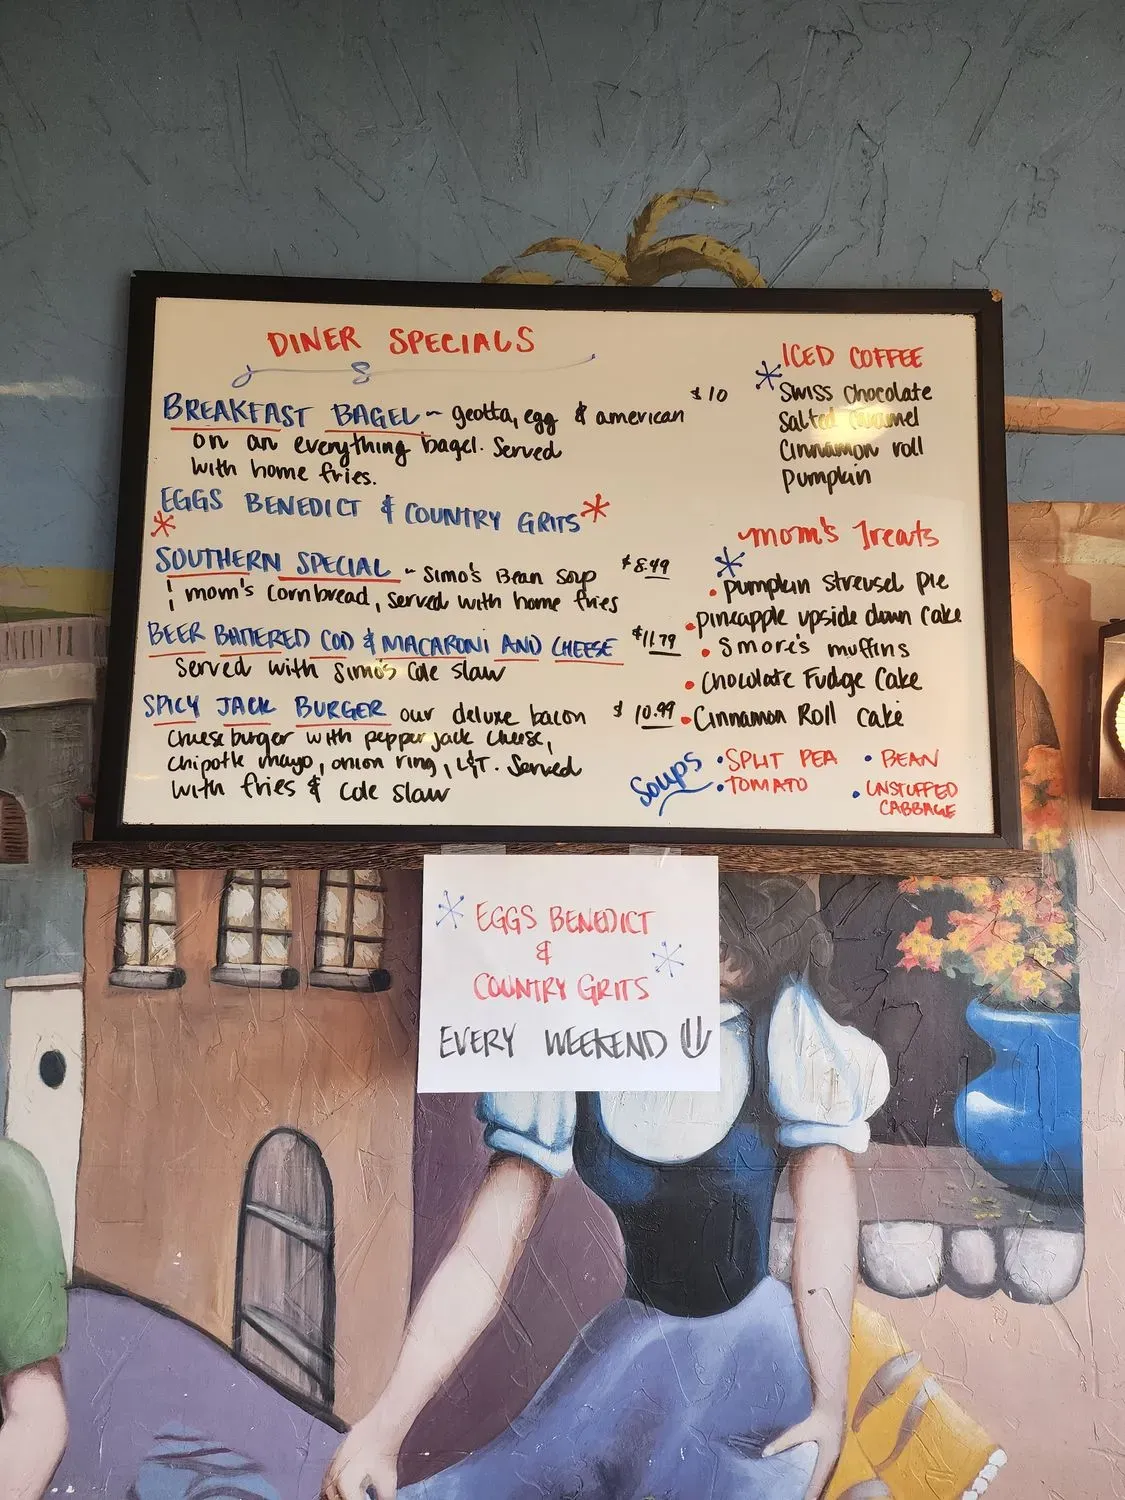 DINER SPECIALS
BREAKFAST BAGEL ~ geotta, egg & american $10
on an everything bagel. Served
with home fries.
EGGS BENEDICT & COUNTRY GRITS
SOUTHERN SPECIAL ~ Simo's Bean Soup $8.49
& mom's Cornbread, served with home fries
BEER BATTERED COD & MACARONI AND CHEESE $11.79
Served with Simo's Cole slaw
SPICY JACK BURGER our deluxe bacon $10.99
cheeseburger with pepper jack cheese,
chipotle mayo, onion ring, L&T. Served
with fries & cole slaw
ICED COFFEE
Swiss Chocolate
Salted Caramel
Cinnamon roll
Pumpkin
Mom's Treats
• Pumpkin streusel pie
• pineapple upside down cake
• Smore's muffins
• Chocolate Fudge Cake
• Cinnamon Roll Cake
Soups • SPLIT PEA • BEAN
• TOMATO • UNSTUFFED
CABBAGE
EGGS BENEDICT
&
COUNTRY GRITS
EVERY WEEKEND